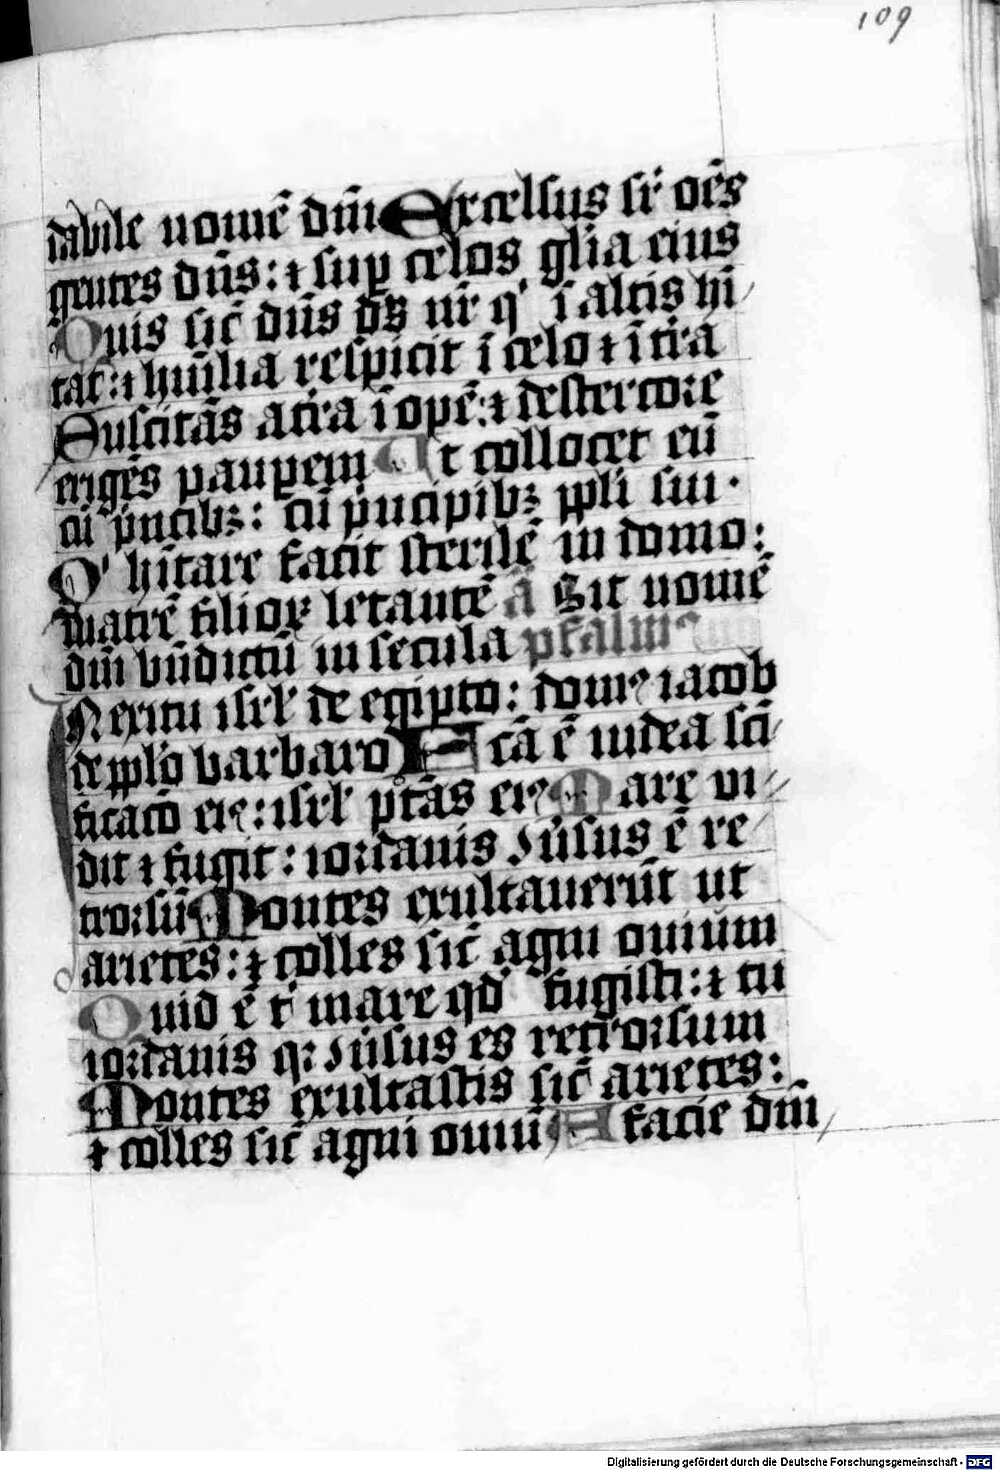 109
dabile nomē dn̄i Excelsus sr̄ om̄s
gentes dn̄s: ⁊ sup celos glīa eius
Quis sic̄ dn̄s ds̄ nr̄ qͥ ī altis hī
tat: ⁊ hūilia respicit ī celo ⁊ ī tr̄a
Suscitās a tr̄a īopē: ⁊ de stercore
erigēs pauperem Ut collocet eū
cū pͥncibꝫ: cū pͥncipibꝫ ppli sui.
Qͥ hītare facit sterilē in domo:
matrē filioꝝ letantē ā Sit nomē
dn̄i bn̄dictū in secula psalmꝰ
N exitu isrl̄ de egipto: domꝰ iacob
de pplo barbaro Fcā ē iudea scī
ficatō eiꝰ: isrl̄ ptās eiꝰ Mare vi
dit ⁊ fugit: iordanis ↄūsus ē re
trorsū Montes exultauerūt ut
arietes: ⁊ colles sic̄ agni ouium
Quid ē tͥ mare qd̄ fugisti: ⁊ tu
iordanis qꝛ ↄūsus es retrorsum
Montes exultastis sic̄ arietes:
⁊ colles sic̄ agni ouiū A facie dn̄i
Digitalisierung gefördert durch die Deutsche Forschungsgemeinschaft - DFG